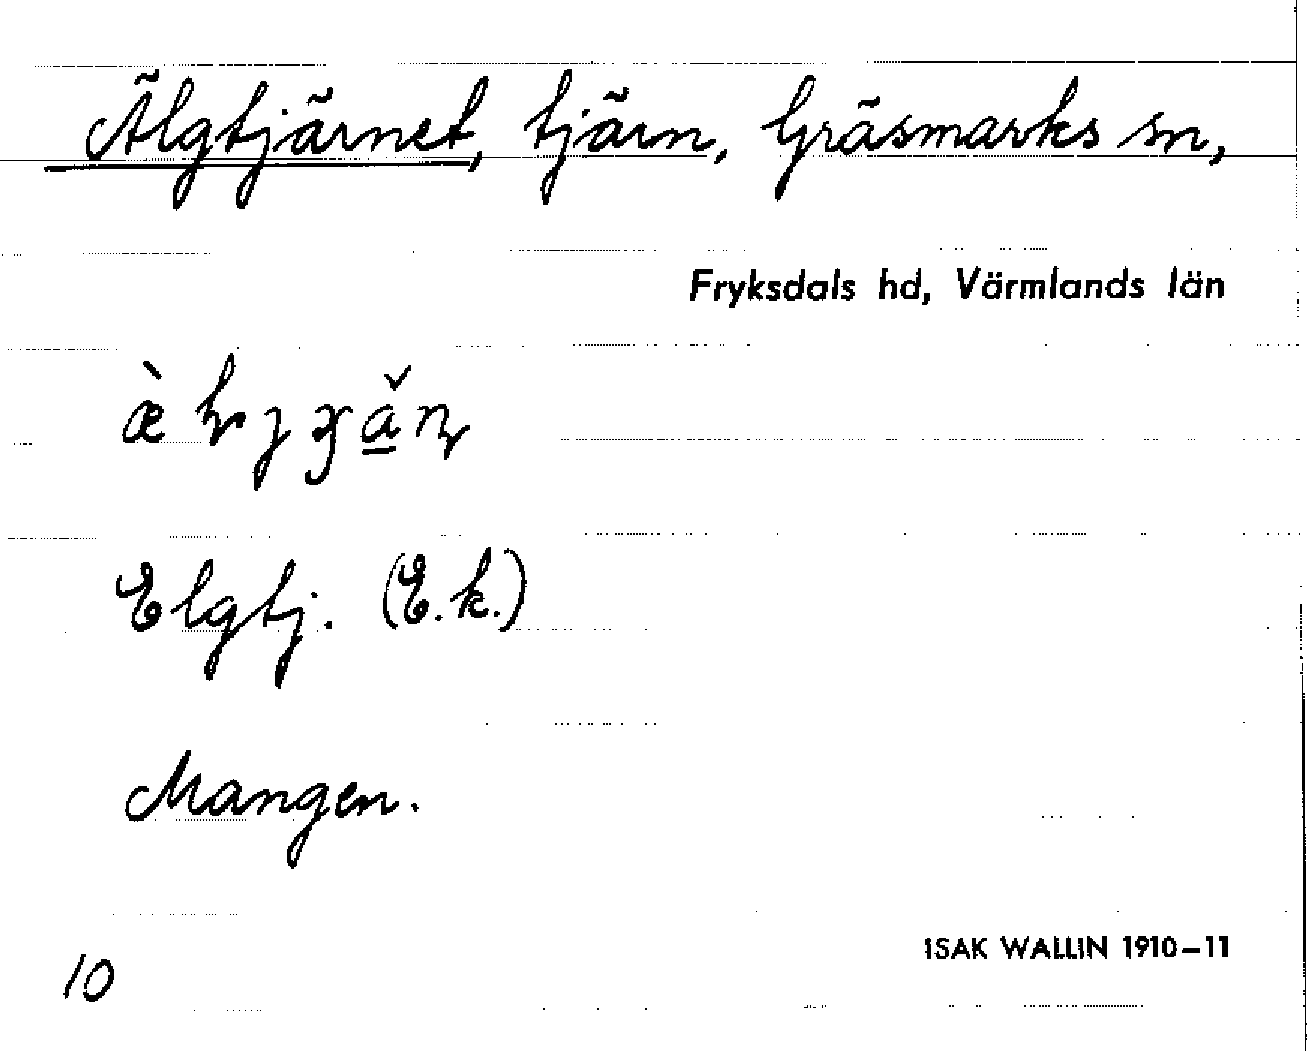 Älgtjärnet, tjärn, Gräsmarks sn,
Fryksdals hd, Värmlands län
Elgtj. (E.k.)
Mangen.
ISAK WALLIN 1910–11
10